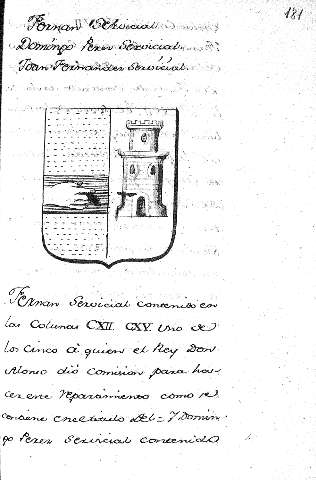 181
Fernan Servicial
Domingo Perez Servicial
Joan Fernandez Servicial
Fernan Servicial contenido en
las Colunas CXII. CXV. Uno de
los cinco à quien el Rey Don
Alonso dió comision para ha-
cer este repartimiento como se
contiene en el titulo del = Y Domin-
go Perez Servicial contenido